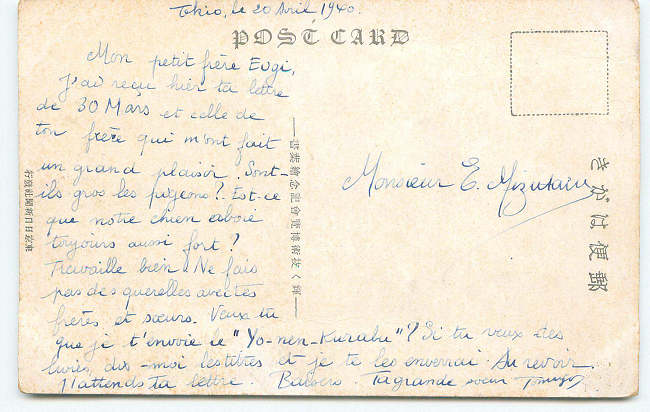 Tokio, le 20 Avril 1940.
POST CARD
Mon petit frère Eugi,
J'ai reçu hier ta lettre
de 30 Mars et celle de
ton frère qui m'ont fait
un grand plaisir. Sont-
ils gros les pigeons? Est-ce
que notre chien aboie
toujours aussi fort?
Travaille bien. Ne fais
pas des querelles avec tes
frères et sœurs. Veux tu
que je t'envoie le "Yo-nen-Kurabu"? Si tu veux des
livres, dis-moi les titres et je te les enverrai. Au revoir.
J'attends ta lettre. Baisers. Ta grande sœur
Monsieur E. Mizutani
きかは便郵